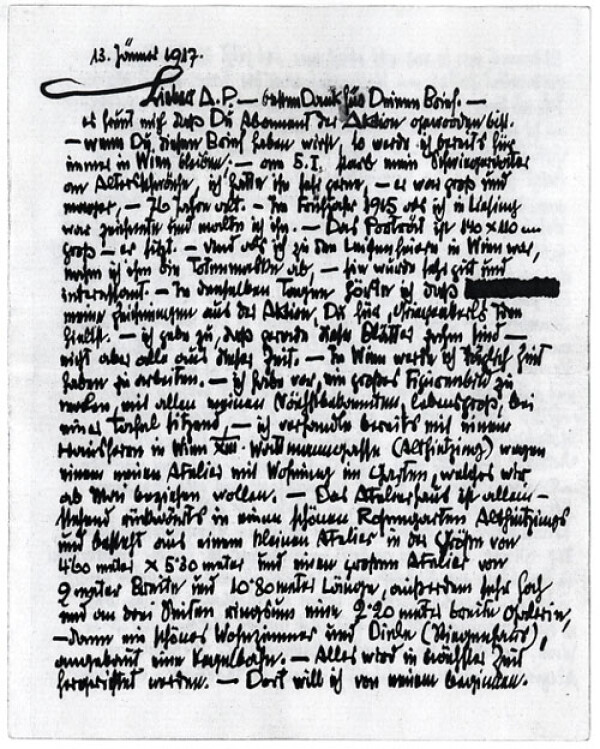 13. Jänner 1917.
Lieber A.P. — besten Dank für Deinen Brief. —
es freut mich daß Du Abonnent der Aktion geworden bist.
— wenn Du diesen Brief haben wirst, so werde ich bereits für
immer in Wien bleiben. — am 5. I. starb mein Schwiegervater
an Altersschwäche, ich hatte ihn sehr gerne, — er war groß und
mager, — 76 Jahre alt. — Im Frühjahr 1915 als ich in Liesing
war zeichnete und malte ich ihn. — Das Porträt ist 140 x 110 cm
groß — er sitzt. — und als ich zu den Leichenfeiern in Wien war,
nahm ich ihm die Totenmaske ab, — sie wurde sehr gut und
interessant. — In denselben Tagen hörte ich daß
meine Zeichnungen aus der Aktion, Du für
hielst. — ich gebe zu, daß gerade diese Blätter zahm sind —
nicht aber alle aus dieser Zeit. — In Wien werde ich täglich Zeit
haben zu arbeiten. — ich habe vor, ein großes Figurenbild zu
machen, mit allen meinen Nächstbekannten, lebensgroß, bei
einer Tafel sitzend, — ich verhandle bereits mit einem
Hausherrn in Wien XIII Wattmanngasse (Althietzing) wegen
einem neuen Atelier mit Wohnung im Garten, welches wir
ab Mai beziehen wollen. — Das Atelierhaus ist allein–
stehend rückwärts in einem schönen Rosengarten Althietzings
und besteht aus einem kleinen Atelier in der Größe von
4·60 meter x 5·30 meter und einem großen Atelier von
9 meter Breite und 10·80 meter Länge, außerdem sehr hoch
und an drei Seiten ringsum eine 2·20 meter breite Galerie,
— dann ein schönes Wohnzimmer und Diele (Stiegenhaus),
angebaut eine Kegelbahn. — Alles wird in nächster Zeit
hergerichtet werden. — Dort will ich von neuem beginnen.